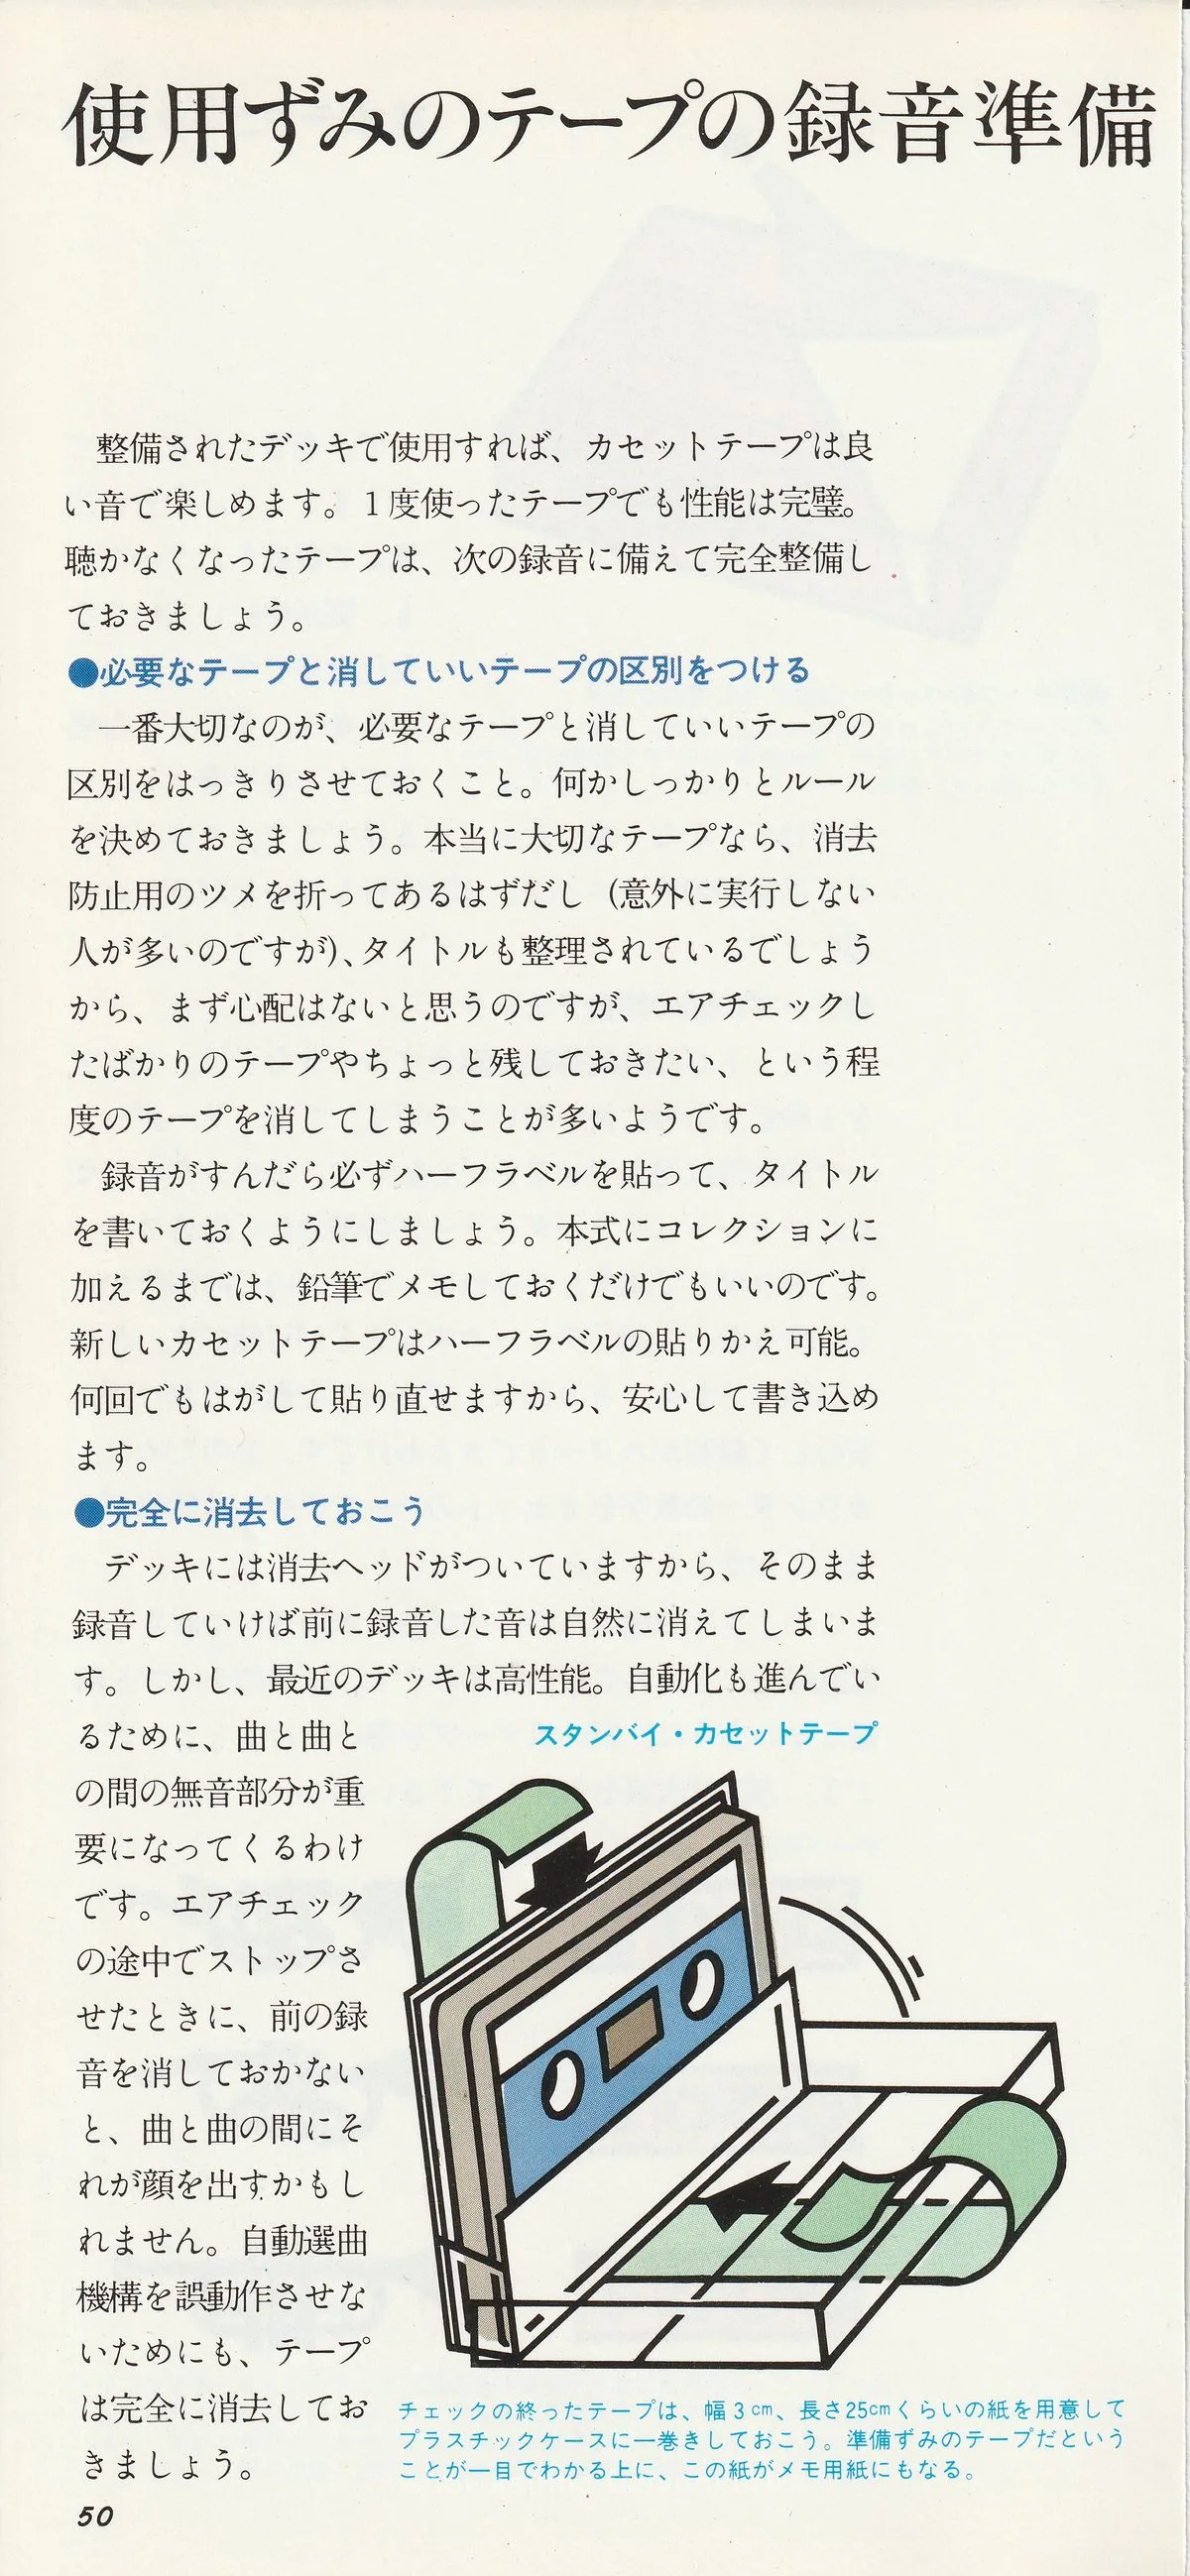 使用ずみのテープの録音準備
整備されたデッキで使用すれば、カセットテープは良
い音で楽しめます。1度使ったテープでも性能は完璧。
聴かなくなったテープは、次の録音に備えて完全整備し
ておきましょう。
●必要なテープと消していいテープの区別をつける
一番大切なのが、必要なテープと消していいテープの
区別をはっきりさせておくこと。何かしっかりとルール
を決めておきましょう。本当に大切なテープなら、消去
防止用のツメを折ってあるはずだし（意外に実行しない
人が多いのですが）、タイトルも整理されているでしょう
から、まず心配はないと思うのですが、エアチェックし
たばかりのテープやちょっと残しておきたい、という程
度のテープを消してしまうことが多いようです。
録音がすんだら必ずハーフラベルを貼って、タイトル
を書いておくようにしましょう。本式にコレクションに
加えるまでは、鉛筆でメモしておくだけでもいいのです。
新しいカセットテープはハーフラベルの貼りかえ可能。
何回でもはがして貼り直せますから、安心して書き込め
ます。
●完全に消去しておこう
デッキには消去ヘッドがついていますから、そのまま
録音していけば前に録音した音は自然に消えてしまいま
す。しかし、最近のデッキは高性能。自動化も進んでい
るために、曲と曲と
の間の無音部分が重
要になってくるわけ
です。エアチェック
の途中でストップさ
せたときに、前の録
音を消しておかない
と、曲と曲の間にそ
れが顔を出すかもし
れません。自動選曲
機構を誤動作させな
いためにも、テープ
は完全に消去してお
きましょう。
スタンバイ・カセットテープ
チェックの終ったテープは、幅3cm、長さ25cmくらいの紙を用意して
プラスチックケースに一巻きしておこう。準備ずみのテープだという
ことが一目でわかる上に、この紙がメモ用紙にもなる。
50